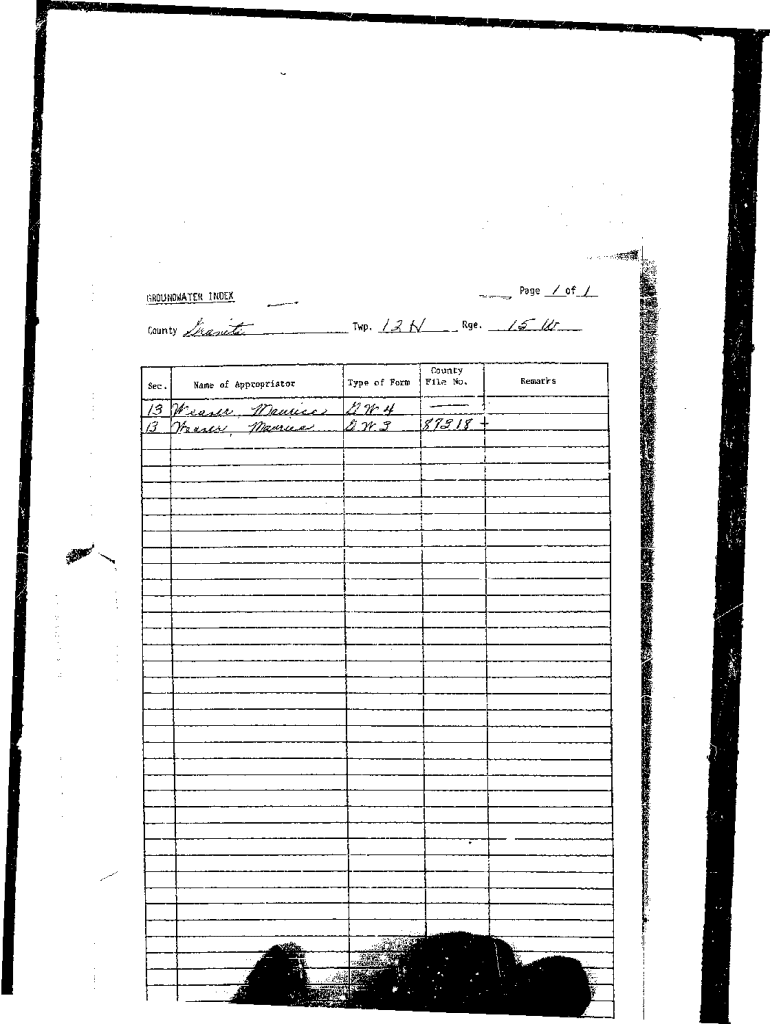 GROUNDWATER INDEX
Page 1 of 1
County Granite Twp. 12 N Rge. 15 W
Sec. Name of Appropriator Type of Form County File No. Remarks
13 Weaver, Maurice G.W. 4 ——
13 Weaver, Maurice G.W. 3 87318 +